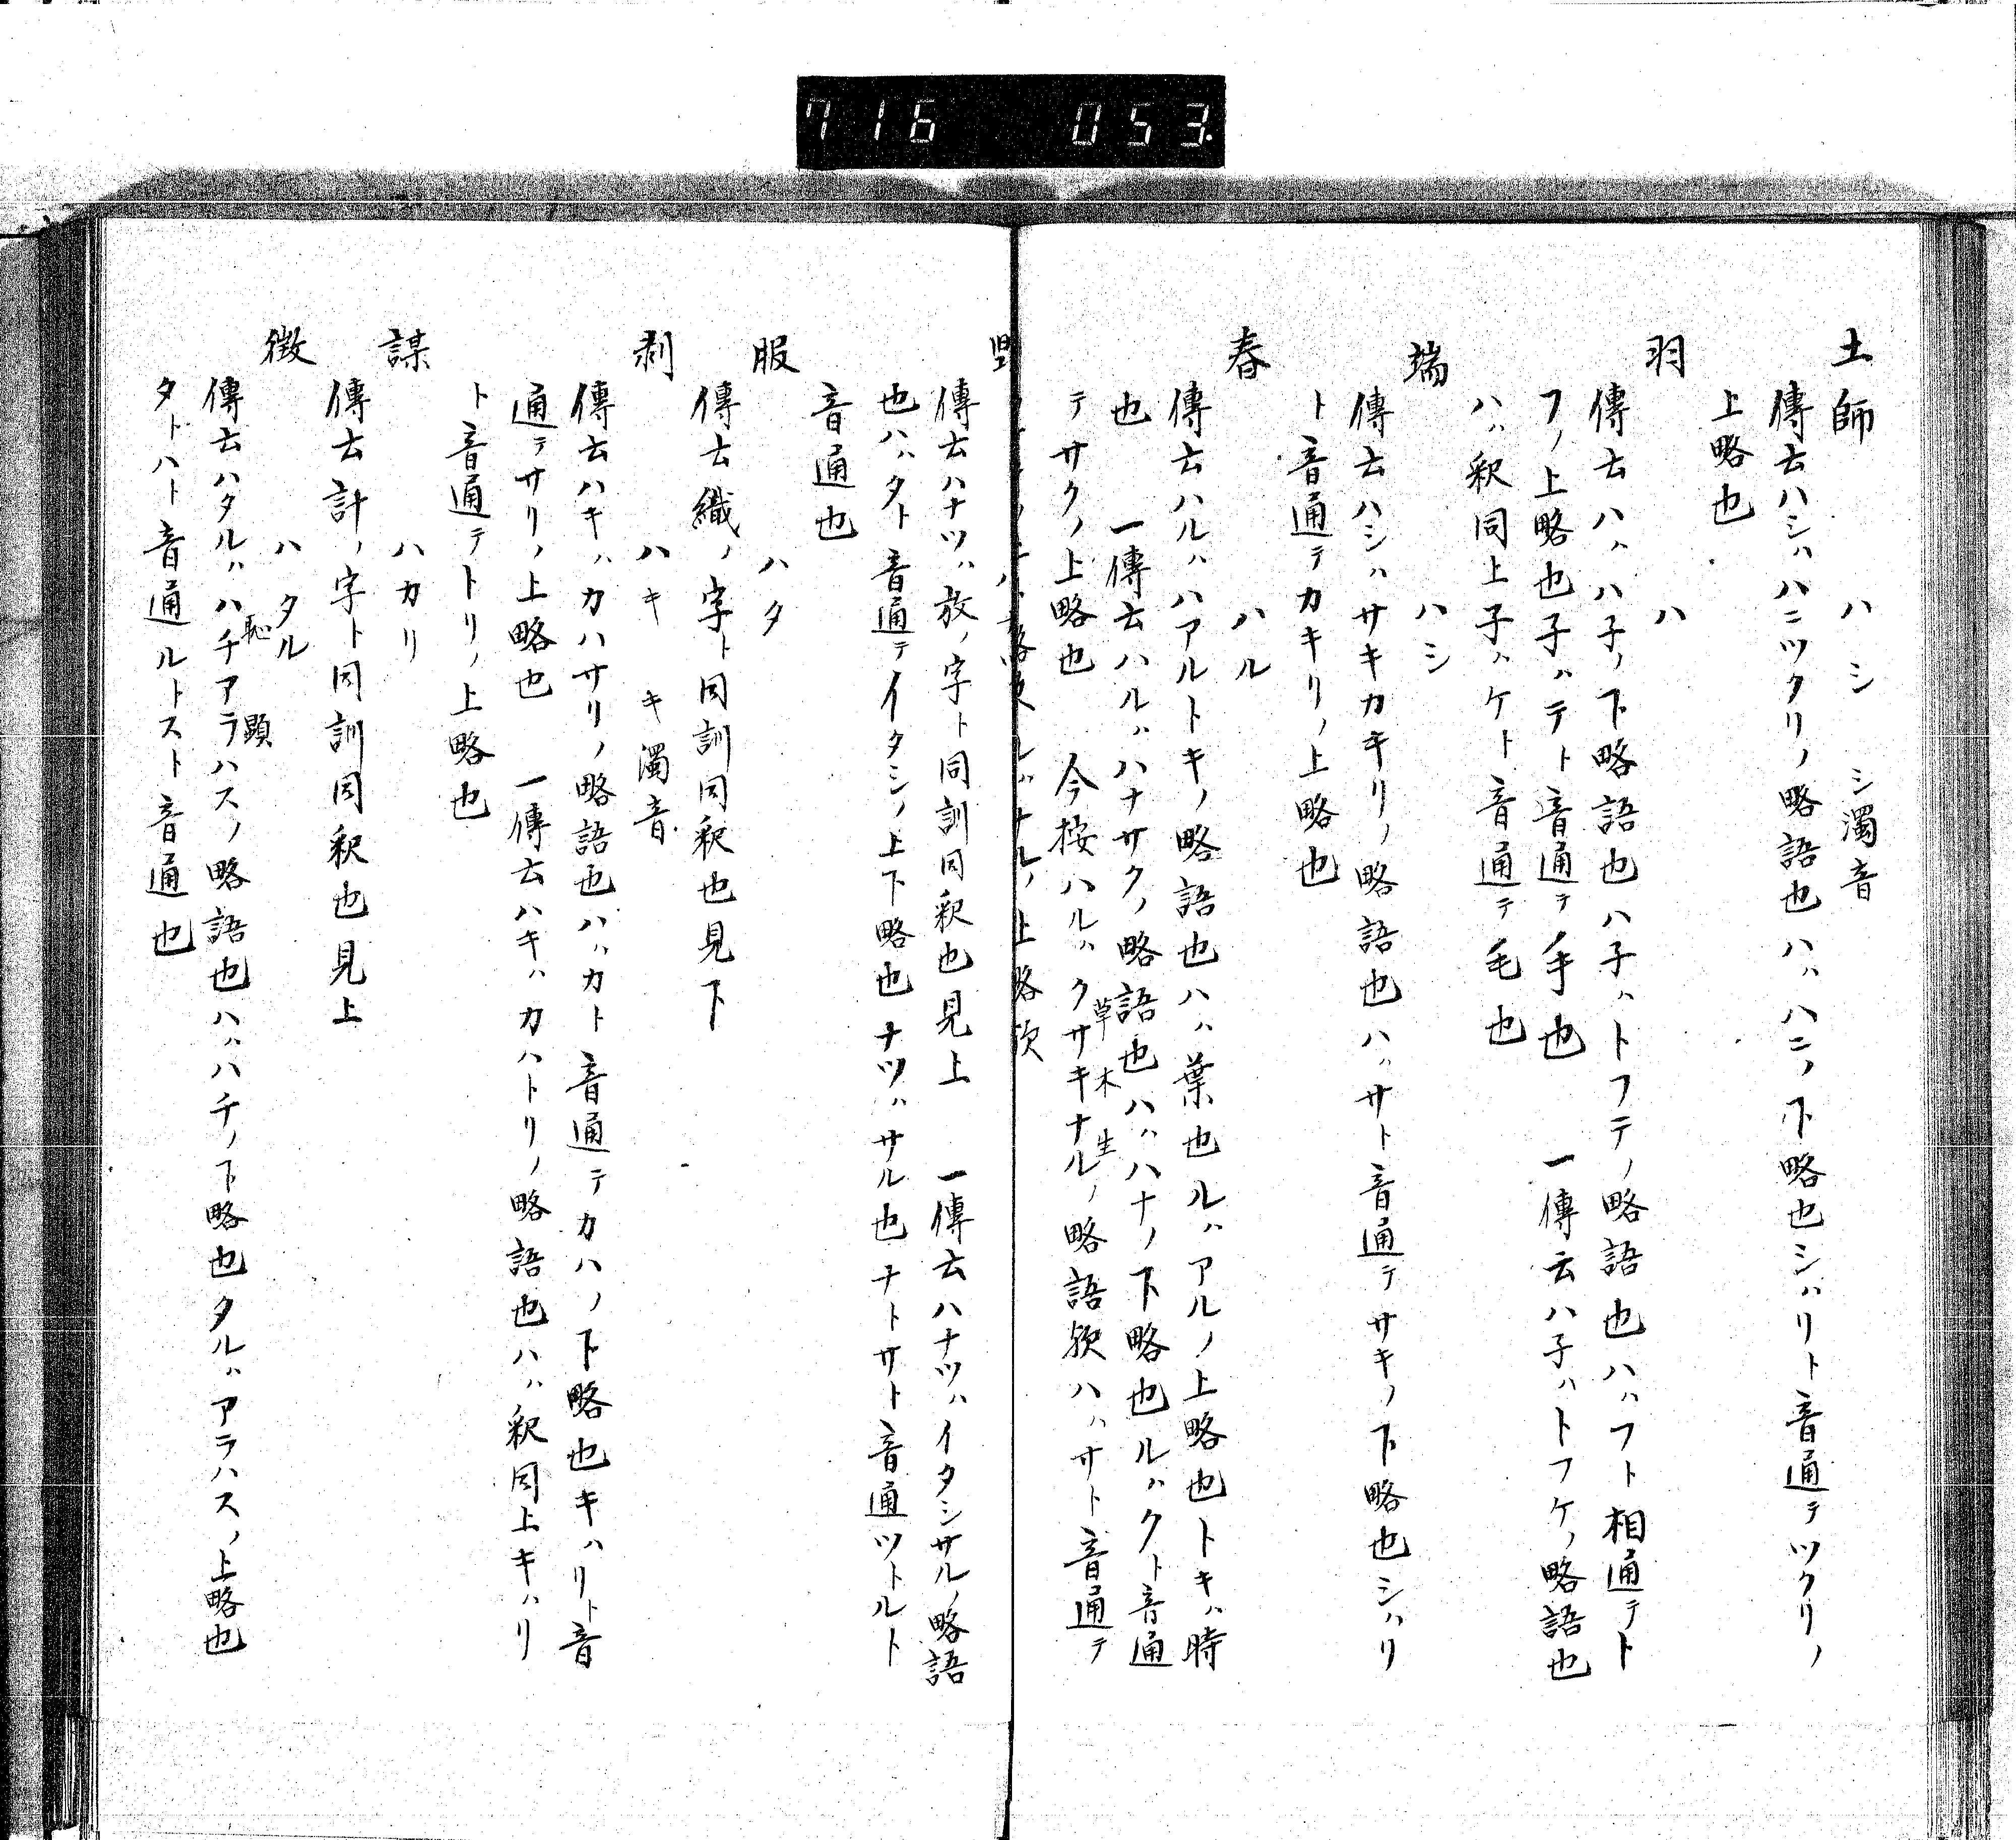 716 053.
土師 ハシ シ濁音
傳云ハシハハニツクリノ略語也ハハハニノ下略也シハリト音通テツクリノ
上略也
羽 ハ
傳云ハハハ子ノ下略語也ハ子ハトフテノ略語也ハハフト相通テト
フノ上略也子ハテト音通テ手也 一傳云ハ子ハトフケノ略語也
ハハ釈同上子ハケト音通テ毛也
端 ハシ
傳云ハシハサキカキリノ略語也ハハサト音通テサキノ下略也シハリ
ト音通テカキリノ上略也
春 ハル
傳云ハルハハアルトキノ略語也ハハ葉也ルハアルノ上略也トキハ時
也 一傳云ハルハハナサクノ略語也ハハハナノ下略也ルハクト音通
テサクノ上略也 今按ハルハクサキナルノ略語欤ハハサト音通テ
草木 生
傳云ハナツハ放ノ字ト同訓同釈也見上 一傳云ハナツハイタシサルノ略語
也ハハタト音通テイタシノ上下略也ナツハサル也ナトサト音通ツトルト
音通也
服 ハタ
傳云織ノ字ト同訓同釈也見下
剥 ハキ キ濁音
傳云ハキハカハサリノ略語也ハハカト音通テカハノ下略也キハリト音
通テサリノ上略也 一傳云ハキハカハトリノ略語也ハハ釈同上キハリ
ト音通テトリノ上略也
謀 ハカリ
傳云計ノ字ト同訓同釈也見上
徴 ハタル
恥 顕
傳云ハタルハハチアラハスノ略語也ハハハチノ下略也タルハアラハスノ上略也
タトハト音通ルトスト音通也